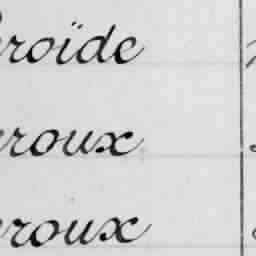 roïde
roux
roux